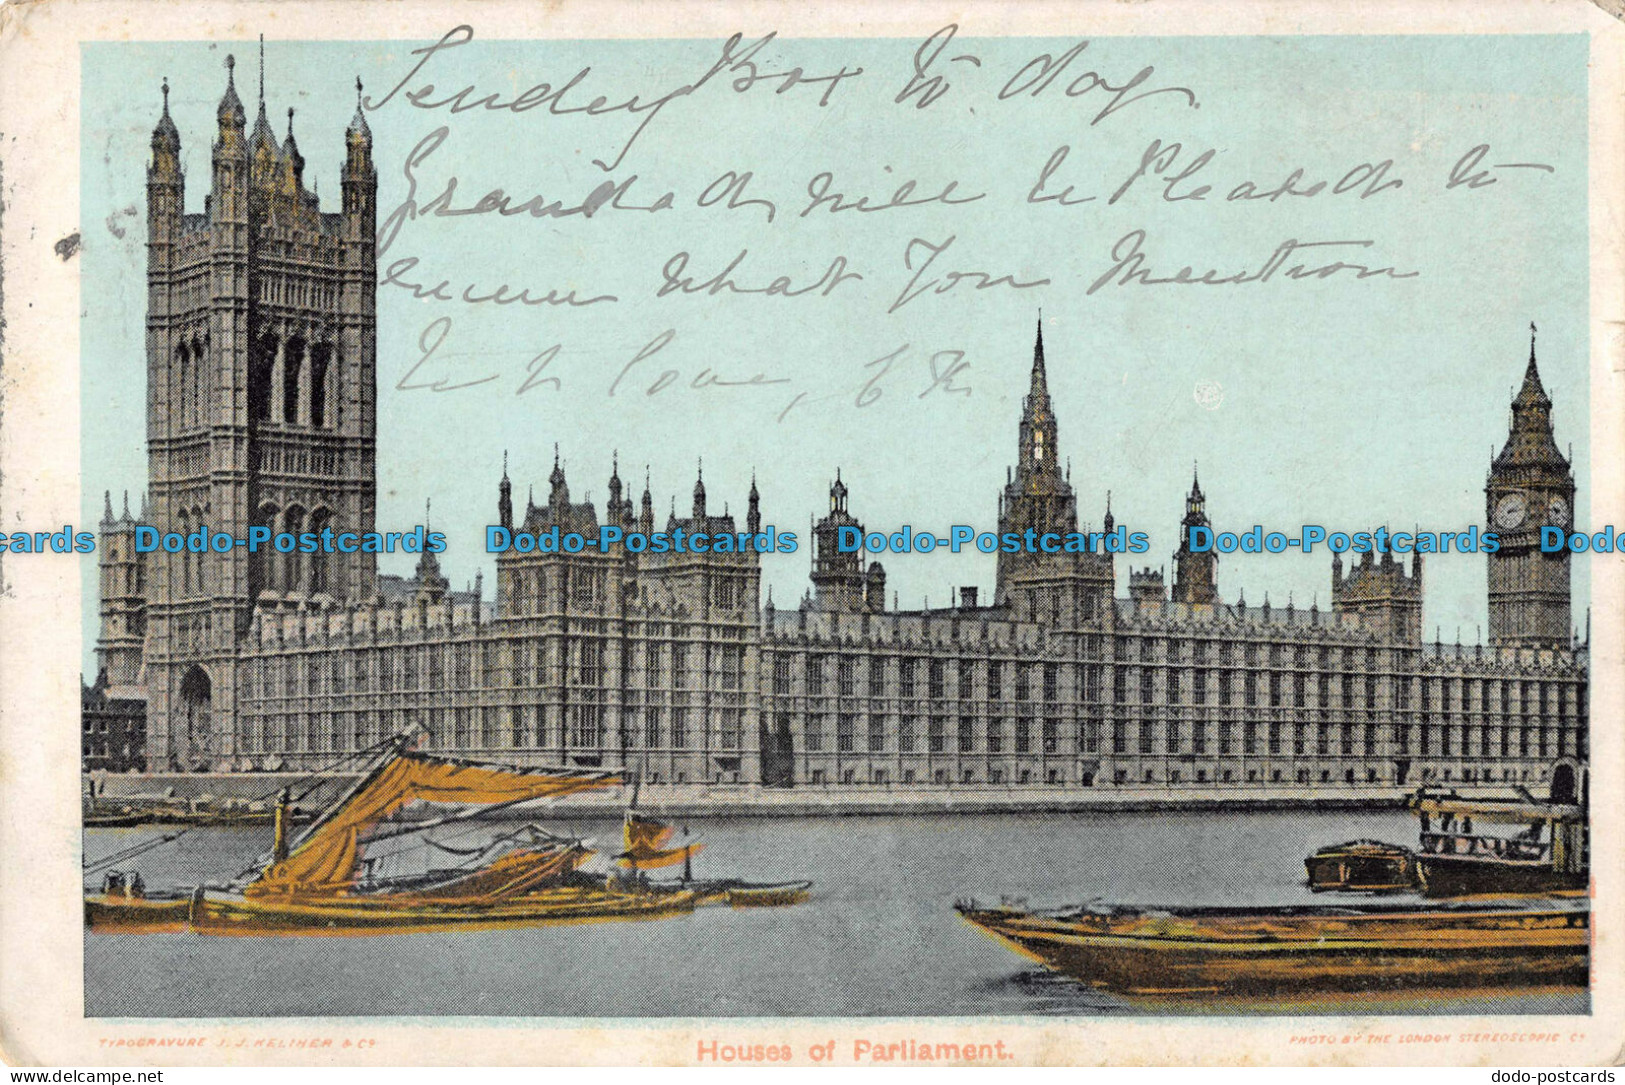 Sending Box to day.
Grandad will be Pleased to
receive what you Mention
with love,
cards Dodo-Postcards Dodo-Postcards Dodo-Postcards Dodo-Postcards Dodo
TYPOGRAVURE J. J. KELIHER & Co
Houses of Parliament.
PHOTO BY THE LONDON STEREOSCOPIC Co
delcampe.net
dodo-postcards